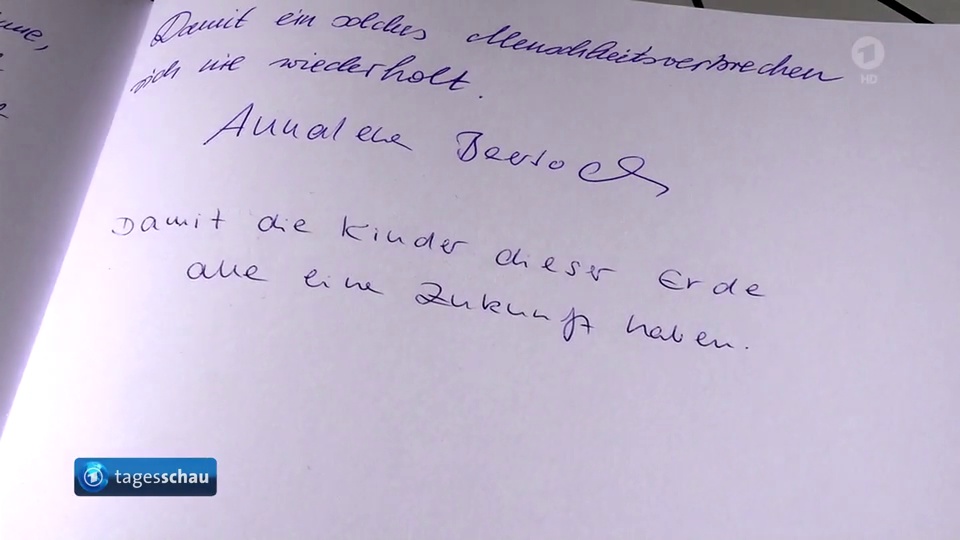 Damit ein solches Menschheitsverbrechen
sich nie wiederholt.
Annalena Baerbock
Damit die Kinder dieser Erde
alle eine Zukunft haben.
ARD
HD
tagesschau